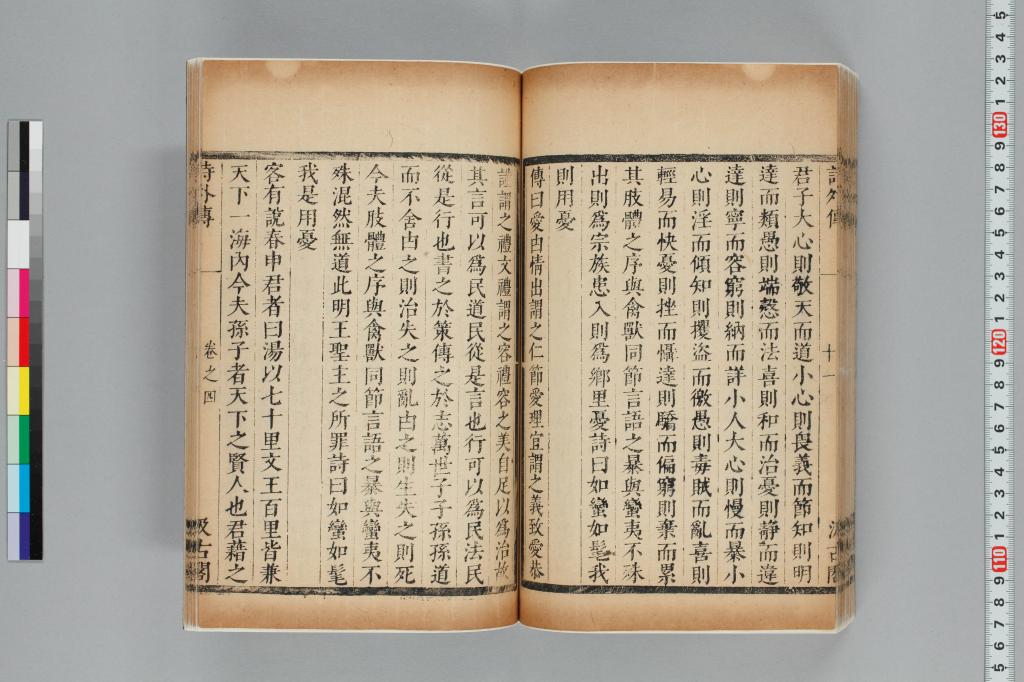 詩外傳 十一 汲古閣
君子大心則敬天而道小心則畏義而節知則明
達而類愚則端愨而法喜則和而治憂則静而違
達則寧而容窮則納而詳小人大心則慢而暴小
心則淫而傾知則攫盗而徼愚則毒賊而亂喜則
輕易而快憂則挫而懾達則驕而偏窮則棄而累
其肢體之序與禽獸同節言語之暴與蠻夷不殊
出則爲宗族患入則爲鄉里憂詩曰如蠻如髦我
則用憂
傳曰愛由情出謂之仁節愛理宜謂之義致愛恭
謹謂之禮文禮謂之容禮容之美自足以爲治故
其言可以爲民道民從是言也行可以爲民法民
從是行也書之於策傳之於志萬世子子孫孫道
而不舍由之則治失之則亂由之則生失之則死
今夫肢體之序與禽獸同節言語之暴與蠻夷不
殊混然無道此明王聖主之所罪詩曰如蠻如髦
我是用憂
客有說春申君者曰湯以七十里文王百里皆兼
天下一海内今夫孫子者天下之賢人也君藉之
詩外傳 卷之四 汲古閣
5
4
3
2
1
130
9
8
7
6
5
4
3
2
1
120
9
8
7
6
5
4
3
2
1
110
9
8
7
6
5